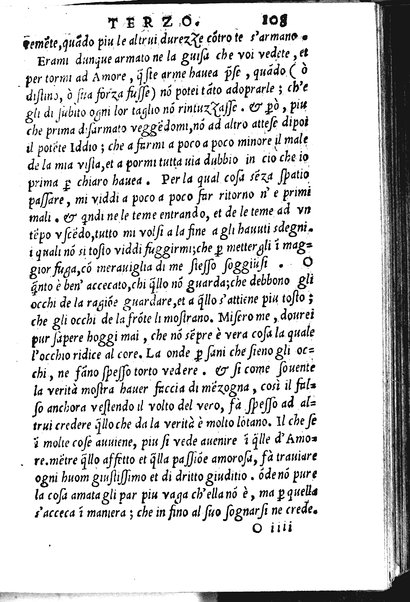 TERZO. 108
temẽte, quãdo piu le altrui durezze cõtro te s'armano.
Erami dunque armato ne la guisa che voi vedete, et
per tormi ad Amore, q̃ste arme hauea p̃se, quãdo (ò
distino, ò sua forza fusse) nõ potei tãto adoprarle; ch'e
gli di subito ogni lor taglio nõ rintuzzasse. & p̃ò, piu
che prima disarmato veggẽdomi, nõ ad altro attese dipoi
il potẽte Iddio; che a farmi a poco a poco minore il male
de la mia vista, et a pormi tutta uia dubbio in ciò che io
prima p̱ chiaro hauea. Per la qual cosa sẽza spatio
passare, mi viddi a poco a poco far ritorno n' e primi
mali. & q̃ndi ne le teme entrando, et de le teme ad vn
tẽpo vscẽdo, tutto mi volsi a la fine a gli hauuti sdegni.
i quali nõ si tosto viddi fuggirmi; che p̱ mettergli ĩ mag=
gior fuga, cõ merauiglia di me stesso soggiũsi. O
q̃nto è ben' accecato, chi q̃llo nõ guarda; che debbono gli
occhi de la ragiõe guardare, et a q̃llo s'attiene piu tosto;
che gli occhi de la frõte li mostrano. Misero me, dourei
pur sapere hoggi mai, che nõ sẽpre è vera cosa la quale
l'occhio ridice al core. La onde p̱ sani che sieno gli oc=
chi, ne fãno spesso torto vedere. & si come souente
la verità mostra hauer faccia di mẽzogna, così il ful=
so anchora vestendo il volto del vero, fà spesso ad al=
trui credere q̃llo che da la verità è molto lõtano. Il che se
ĩ molte cose auuiene, piu si vede auenire ĩ q̃lle d'Amo=
re. mẽtre q̃llo affetto et q̃lla passiõe amorosa, fà trauiare
ogni huom giustissimo et di dritto giuditio. õde nõ pure
la cosa amata gli par piu vaga ch'ella nõ è, ma p̱ quella
s'acceca ĩ maniera; che in fino al suo sognarsi ne crede.
O iiii